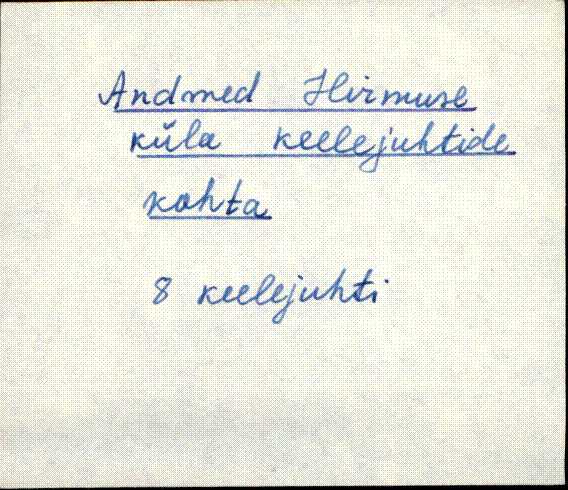 Andmed Hirmuse
küla keelejuhtide
kohta
8 keelejuhti